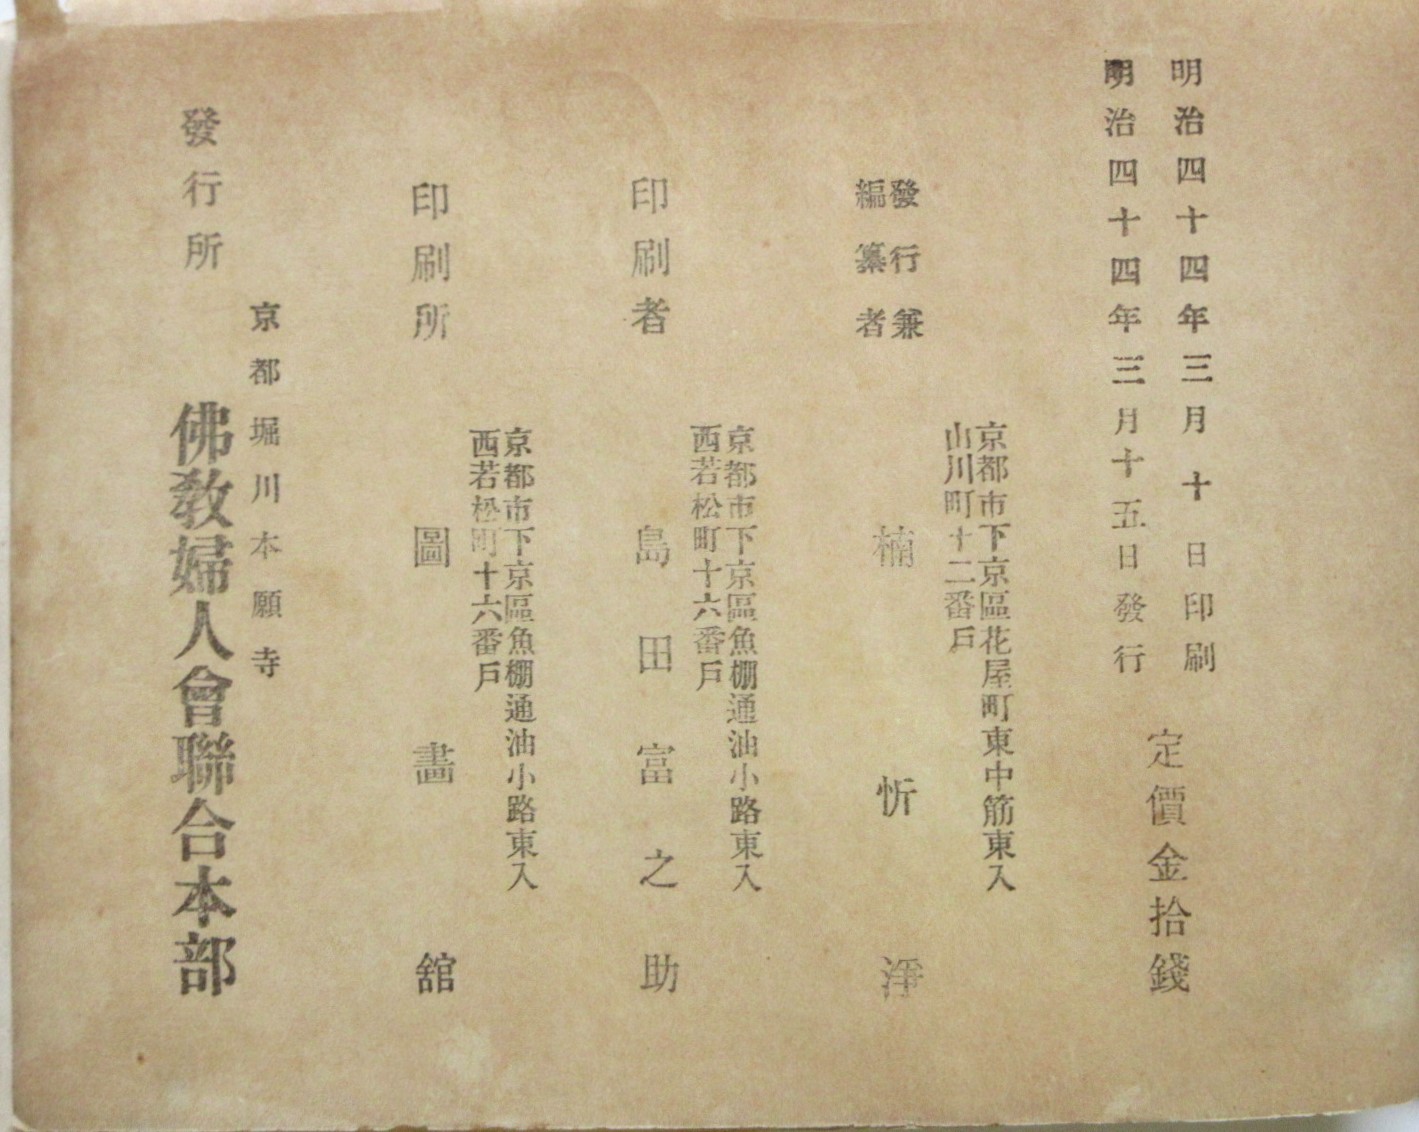 明治四十四年三月十日印刷
明治四十四年三月十五日發行
定價金拾錢
京都市下京區花屋町東中筋東入
山川町十二番戶
發行兼
編纂者
楠忻淨
京都市下京區魚棚通油小路東入
西若松町十六番戶
印刷者
島田富之助
京都市下京區魚棚通油小路東入
西若松町十六番戶
印刷所
圖畫舘
京都堀川本願寺
發行所
佛敎婦人會聯合本部